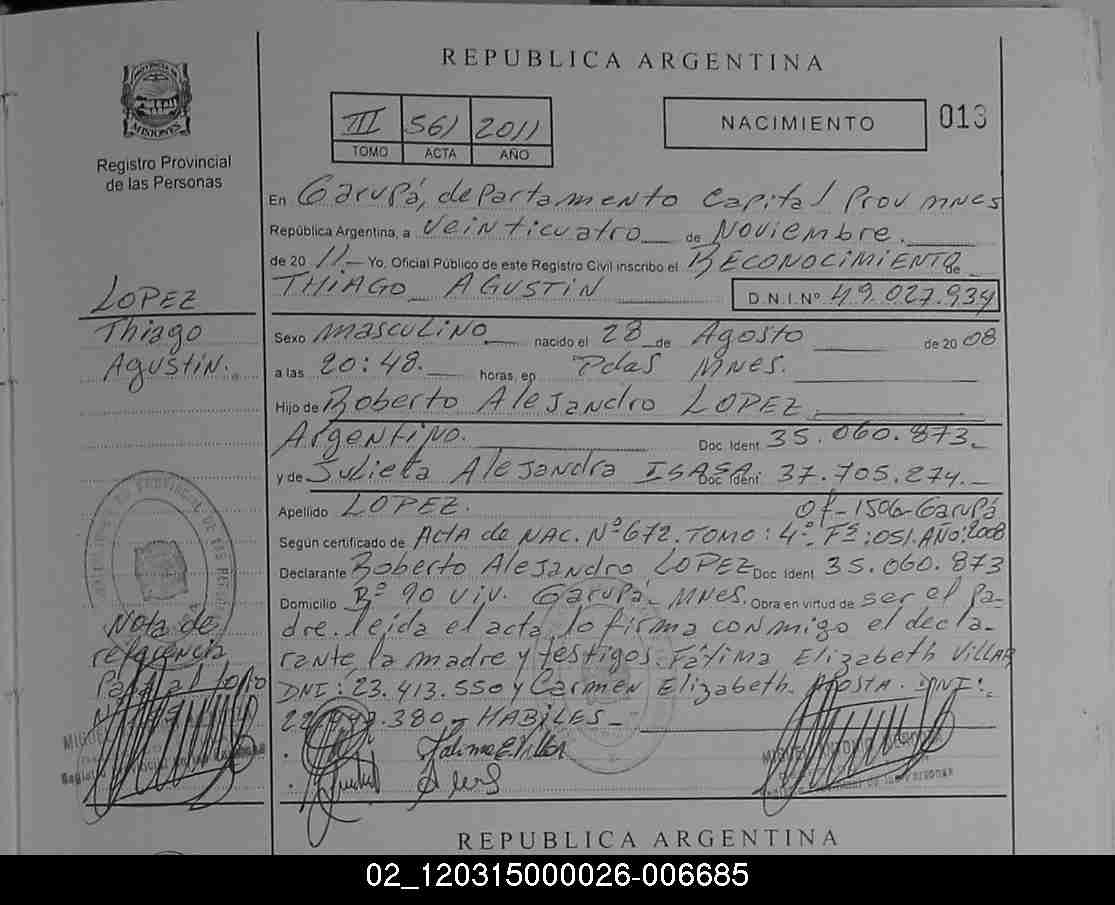 REPUBLICA ARGENTINA
PROVINCIA DE
MISIONES
Registro Provincial
de las Personas
III 561 2011
TOMO ACTA AÑO
NACIMIENTO
013
En Garupá, departamento Capital Prov MNES
República Argentina, a veinticuatro de Noviembre.
de 2011 Yo, Oficial Público de este Registro Civil inscribo el RECONOCIMIENTO de
THIAGO AGUSTIN D.N.I.Nº 49.027.934
LOPEZ
Thiago
Agustín.
Sexo masculino nacido el 28 de Agosto de 2008
a las 20:48. horas, en Pdas MNES.
Hijo de Roberto Alejandro LOPEZ
Argentino. Doc. Ident 35.060.873.
y de Julieta Alejandra ISASA Doc Ident 37.705.274.
Apellido LOPEZ. Of-1506-Garupá
Según certificado de ACTA de NAC. Nº 672. TOMO: 4º. Fº: 051. AÑO: 2008
Declarante Roberto Alejandro LOPEZ Doc Ident 35.060.873
Domicilio Bº 90 viv. Garupá-MNES. Obra en virtud de ser el pa-
dre. leída el acta, lo firma conmigo el decla-
rante, la madre y testigos. Fátima Elizabeth VILLAR
DNI: 23.413.550 y Carmen Elizabeth ACOSTA. DNI:
.380- HABILES-
Nota de
referencia
MIGUEL
MIGUEL ANTONIO
REPUBLICA ARGENTINA
02_120315000026-006685